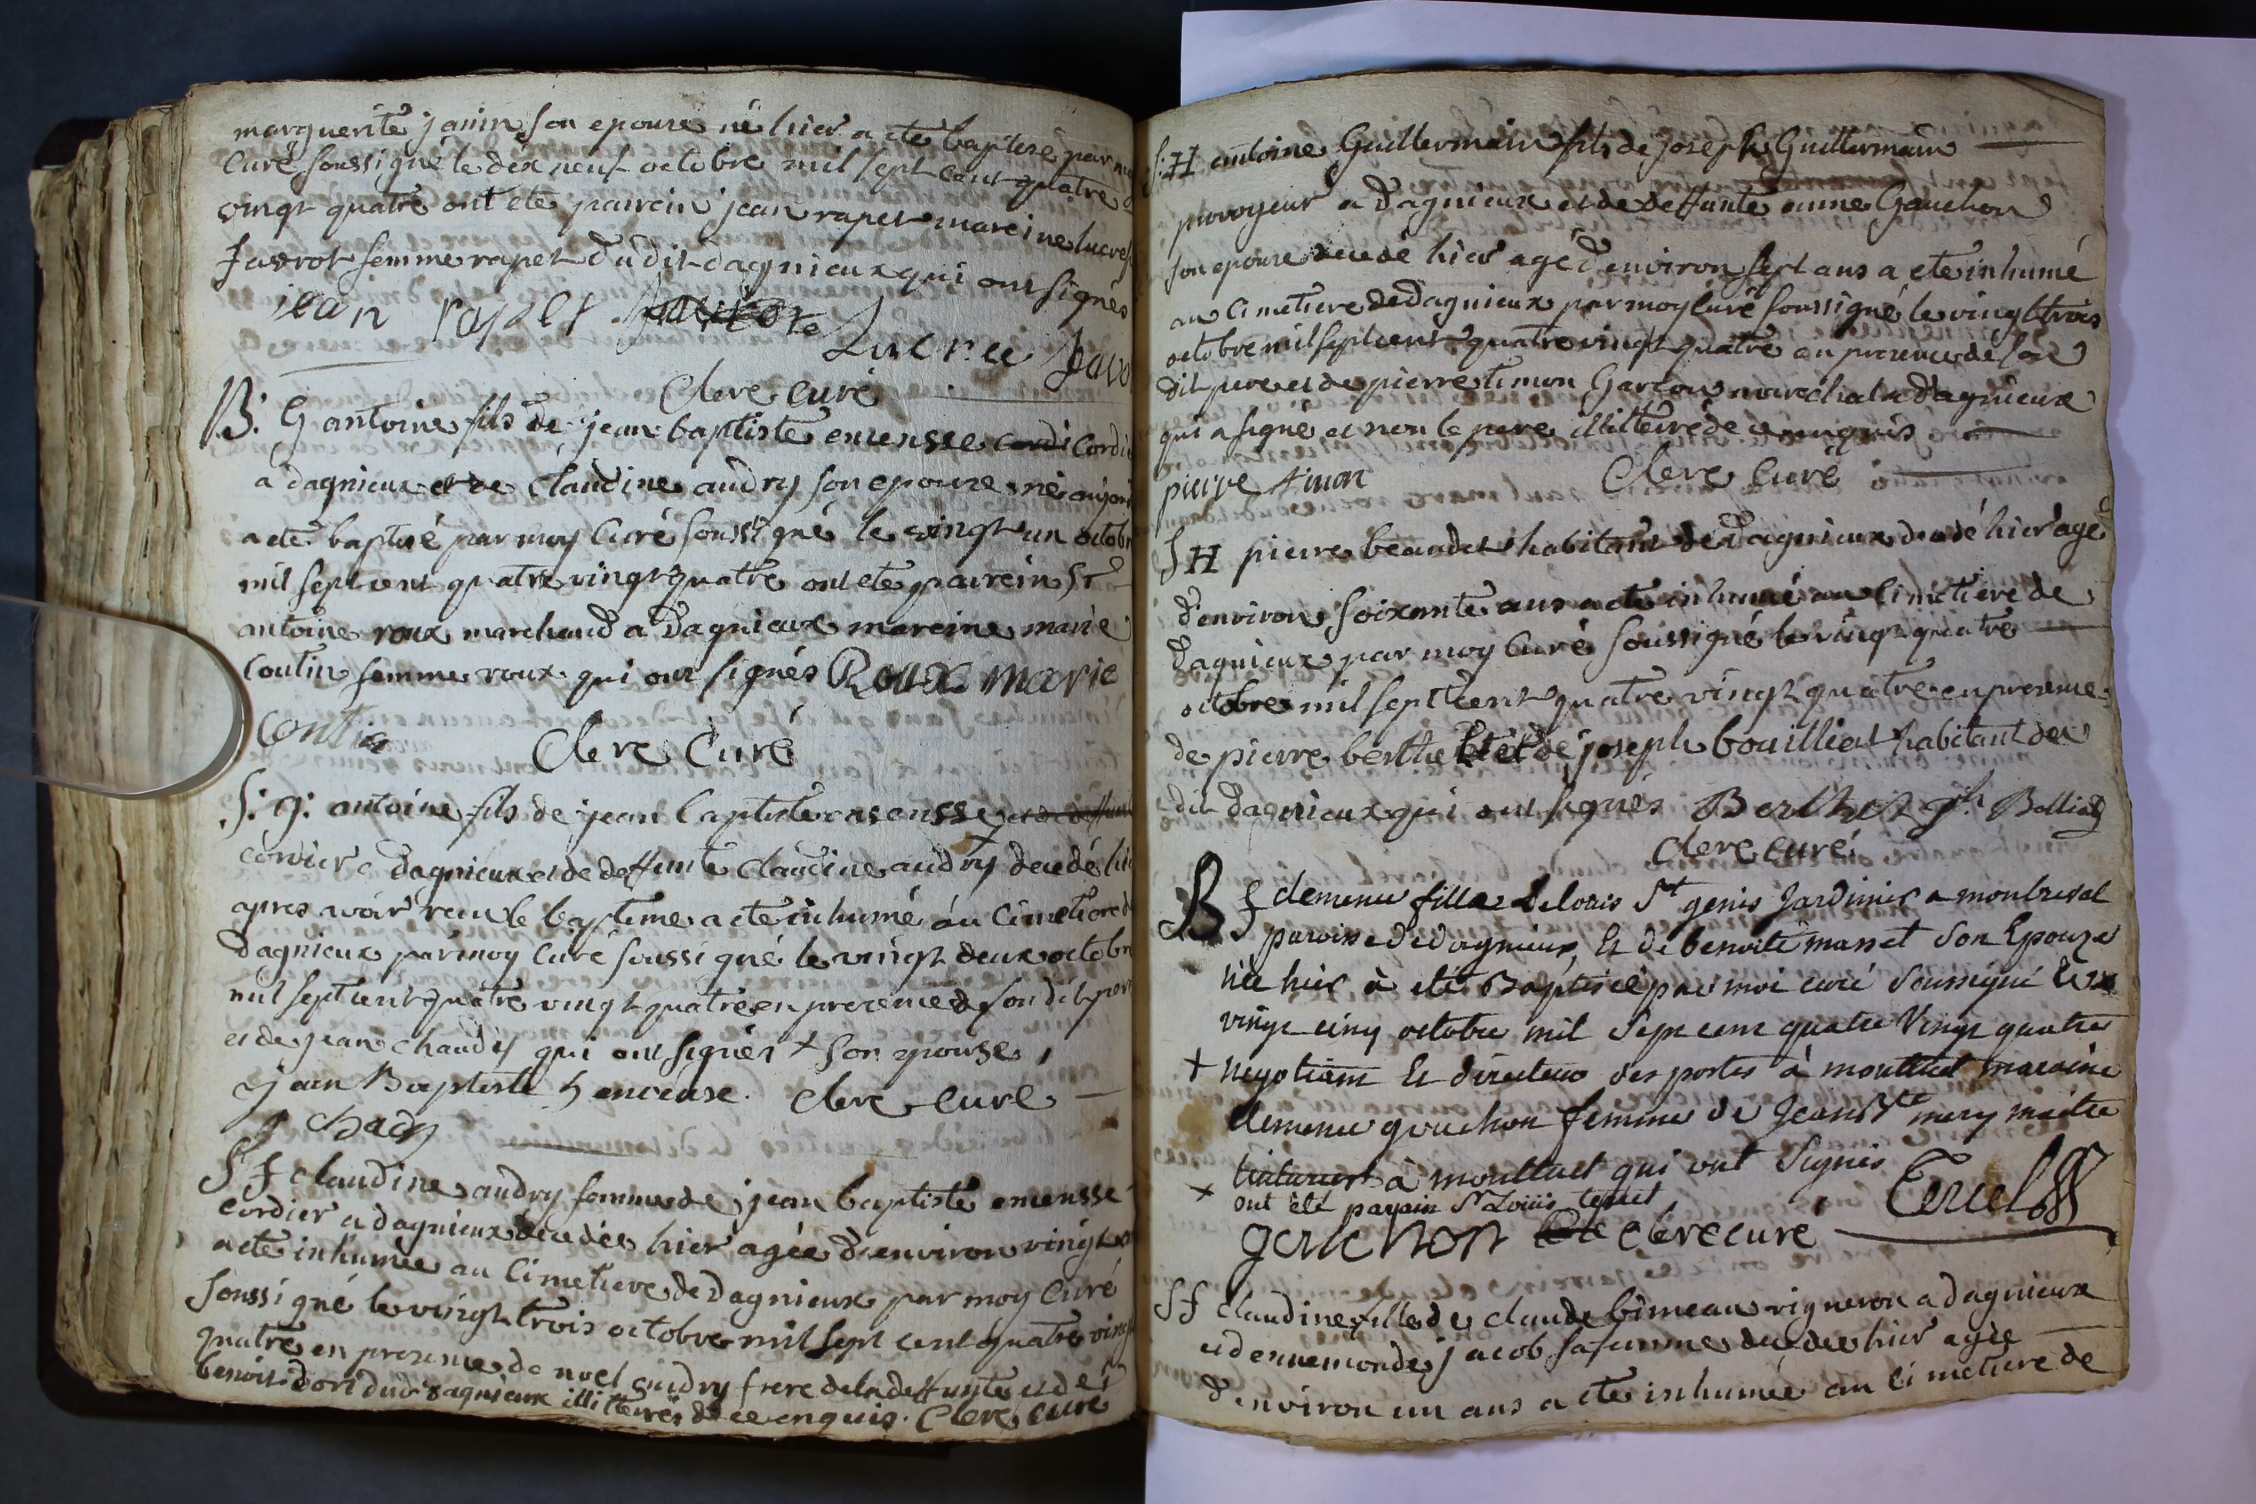 marguerite janin son epouse né hier a ete baptisé par
Curé soussigné le dix neuf octobre mil sept cent quatre
vingt quatre ont ete pairein jean rapet mareine
favrot femme rapet dudit dagnieux qui ont signés
jean rapet Lucrece
Clere curé
B: G antoine fils de jean baptiste emensse cordi
a dagnieux et de Claudine audry son epouse né
a ete baptisé par moy Curé soussigné le vingt un octob
mil sept cent quatre vingt quatre ont ete pairein Sr
antoine roux marchand a dagnieux mareine marie
coutin femme roux qui ont signés Roux marie
contin
Clere Curé
S: g: antoine fils de jean baptiste
cordier a dagnieux et de deffunte Claudine audry decedé
apres avoir recu le bapteme a ete inhumé au Cimetiere
dagnieux par moy Curé soussigné le vingt deux octobr
mil sept cent quatre vingt quatre en presence de son dit
et de jean chaudy qui ont signés + son epouse
jean Baptiste Clere Curé
S f claudine audry femme de jean baptiste emensse
cordier a dagnieux decedée hier agée d'environ vingt
a ete inhumée au Cimetiere de Dagnieux par moy Curé
soussigné le vingt trois octobre mil sept cent quatre ving
quatre en presence de noel audry frere de la deffunte et de
benoit dagnieux illitterés de ce enquis. Clere curé
S: H antoine Guillermain fils de joseph Guillermain
a Dagnieux et de deffunte anne Gauchon
son epouse decedé hier agé d'environ sept ans a ete inhumé
au Cimetiere de dagnieux par moy Curé soussigné le vingt trois
octobre mil sept cent quatre vingt quatre en presence de son
dit pere et de pierre timon Garcon marechal a dagnieux
qui a signé et non le pere illitteré de ce enquis
pierre timon Clere Curé
S H pierre beaudet habitant de Dagnieux decedé hier agé
d'environ soixante ans a ete inhumé au Cimetiere de
dagnieux par moy Curé soussigné le vingt quatre
octobre mil sept cent quatre vingt quatre en presence
de pierre berthet et de joseph bouilliat habitant du
dit dagnieux qui ont signés Berthet jh Bolliad
Clere curé
B f clemence fille de louis St genis Jardinier a montreval
paroisse de dagnieux, Et de benoite masset Son Epouze
née hier à été Baptisée par moi curé Soussigné le
vingt cinq octobre mil Sept cent quatre Vingt quatre
+ negotiant Et directeur des postes à montluel maraine
clemence gouchon femme de Jean Bte mery maitre
à montluel qui ont Signés
+ ont été parain Sr Louis
clere curé
S f claudine fille de claude bimeau vigneron a dagnieux
et d'ennemonde jacob sa femme decedée hier agée
d'environ un ans a ete inhumée au Cimetiere de